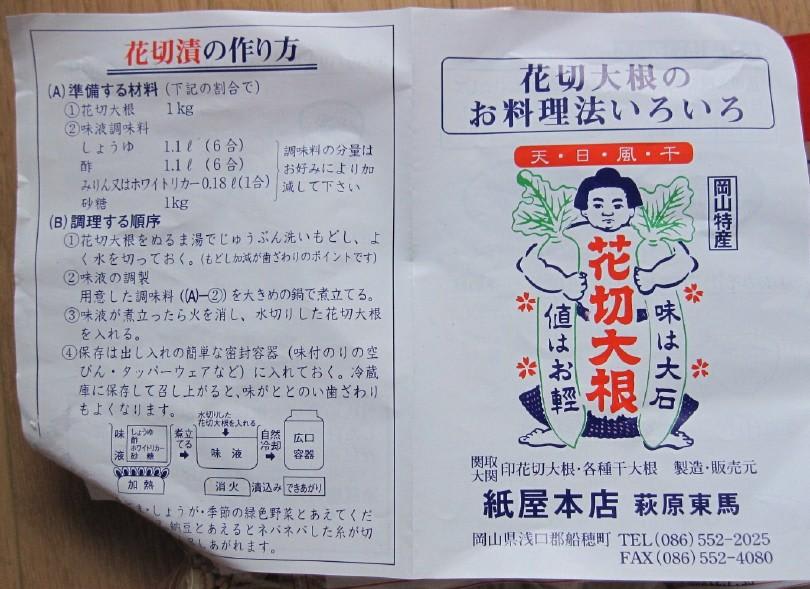 花切漬の作り方
(A)準備する材料(下記の割合で)
①花切大根 1kg
②味液調味料
しょうゆ 1.1ℓ(6合)
酢 1.1ℓ(6合)
みりん又はホワイトリカー0.18ℓ(1合)
砂糖 1kg
調味料の分量は
お好みにより加
減して下さい
(B)調理する順序
①花切大根をぬるま湯でじゅうぶん洗いもどし、よ
く水を切っておく。(もどし加減が歯ざわりのポイントです)
②味液の調製
用意した調味料((A)―②)を大きめの鍋で煮立てる。
③味液が煮立ったら火を消し、水切りした花切大根
を入れる。
④保存は出し入れの簡単な密封容器(味付のりの空
びん・タッパーウェアなど)に入れておく。冷蔵
庫に保存して召し上がると、味がととのい歯ざわり
もよくなります。
味液
しょうゆ
酢
ホワイトリカー
砂糖
加熱
煮立てる
水切りした
花切大根を入れる
味液
消火
漬込み
自然冷却
広口
容器
できあがり
・しょうが・季節の緑色野菜とあえてくだ
納豆とあえるとネバネバした糸が切
しあがれます。
花切大根の
お料理法いろいろ
天・日・風・干
岡山特産
花切大根
味は大石
値はお軽
関取
大関
印花切大根・各種干大根 製造・販売元
紙屋本店 萩原東馬
岡山県浅口郡船穂町 TEL(086)552-2025
FAX(086)552-4080